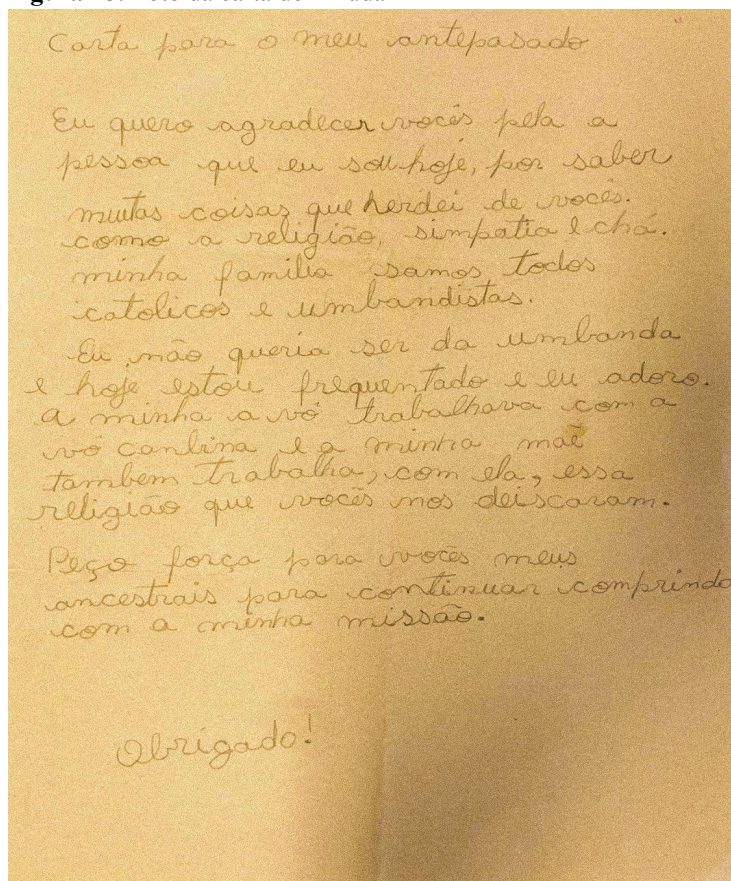 Carta para o meu antepasado
Eu quero agradecer vocês pela a
pessoa que eu sou hoje, por saber
muitas coisas que herdei de vocês.
como a religião, simpatia e chá.
minha familia somos todos
catolicos e umbandistas.
Eu não queria ser da umbanda
e hoje estou frequentado e eu adoro.
a minha a vó trabalhava com a
vó canbina e a minha mãe
tambem trabalha, com ela, essa
religião que vocês nos deiscaram.
Peço força para vocês meus
ancestrais para continuar comprindo
com a minha missão.
Obrigado!